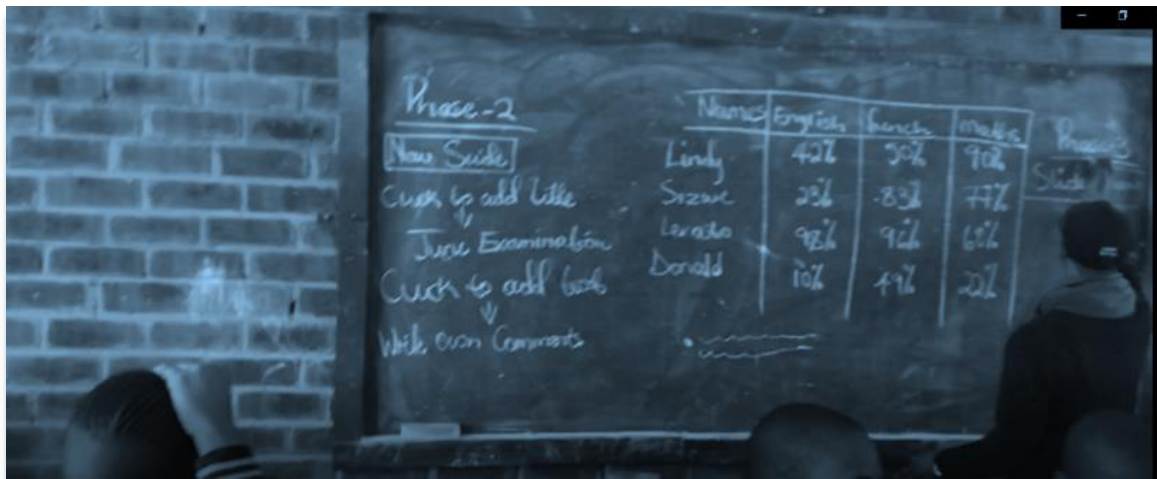 Phase-2
New Slide
Click to add title
June Examination
Click to add text
Write own Comments
Names English French maths
Lindy 42% 50% 90%
23% 83% 77%
Lerato 98% 96% 60%
Donald 10% 49% 22%
Phase 3
Slide